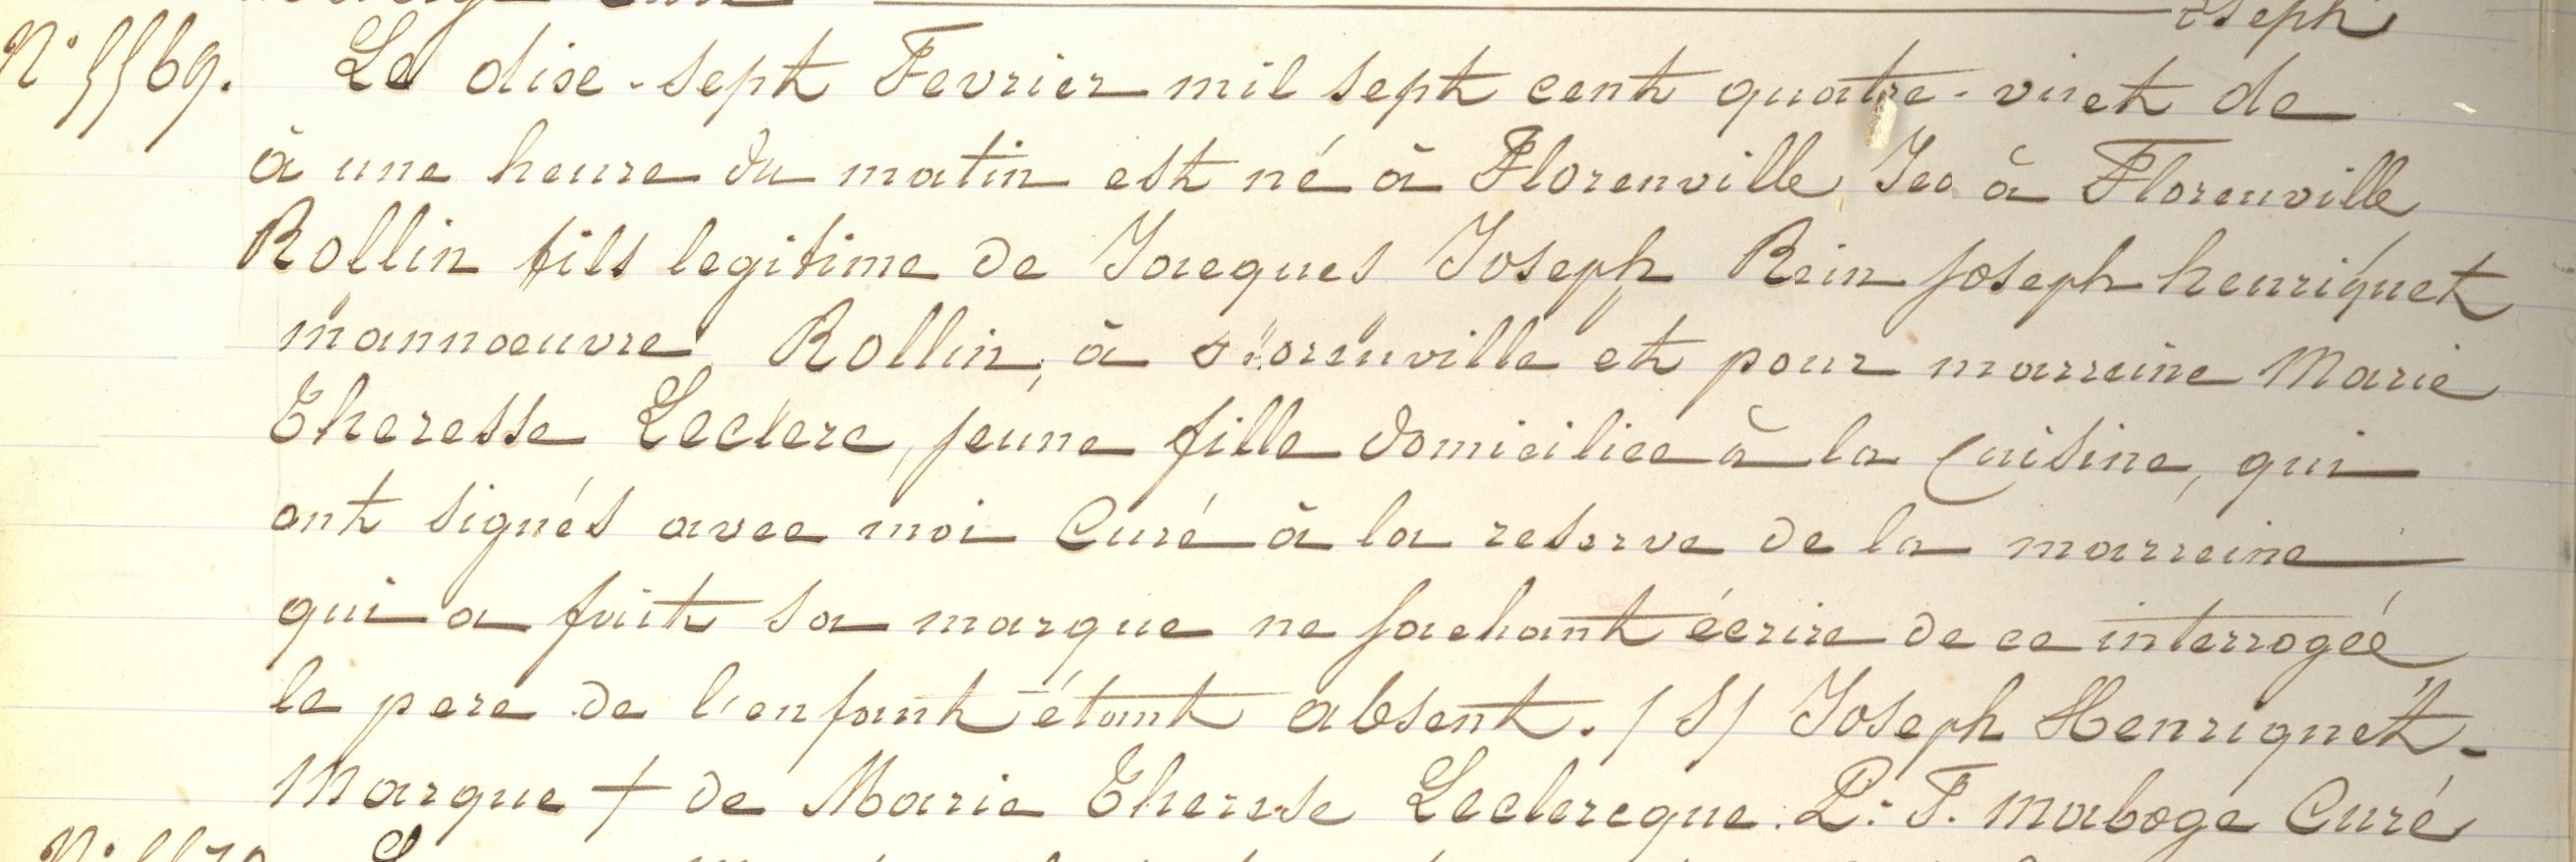 oseph
N° 5569. Le dixe-sept Fevrier mil sept cent quatre-vinet de
à une heure du matin est né à Florenville Jea à Florenville
Rollin fils legitime de Jacques Joseph Rein joseph henriquet
mannoeuvre Rollin, à Florenville et pour marreine Marie
Theresse Leclerc, jeune fille domiciliee à la Cuisine, qui
ont signés avec moi Curé à la reserve de la marreine
qui a fait sa marque ne sachant écrire de ce interrogéé
le pere de l'enfant étant absent. /S/ Joseph Henriquet.
Marque + de Marie Therese Leclercque. P. F. Maboge Curé